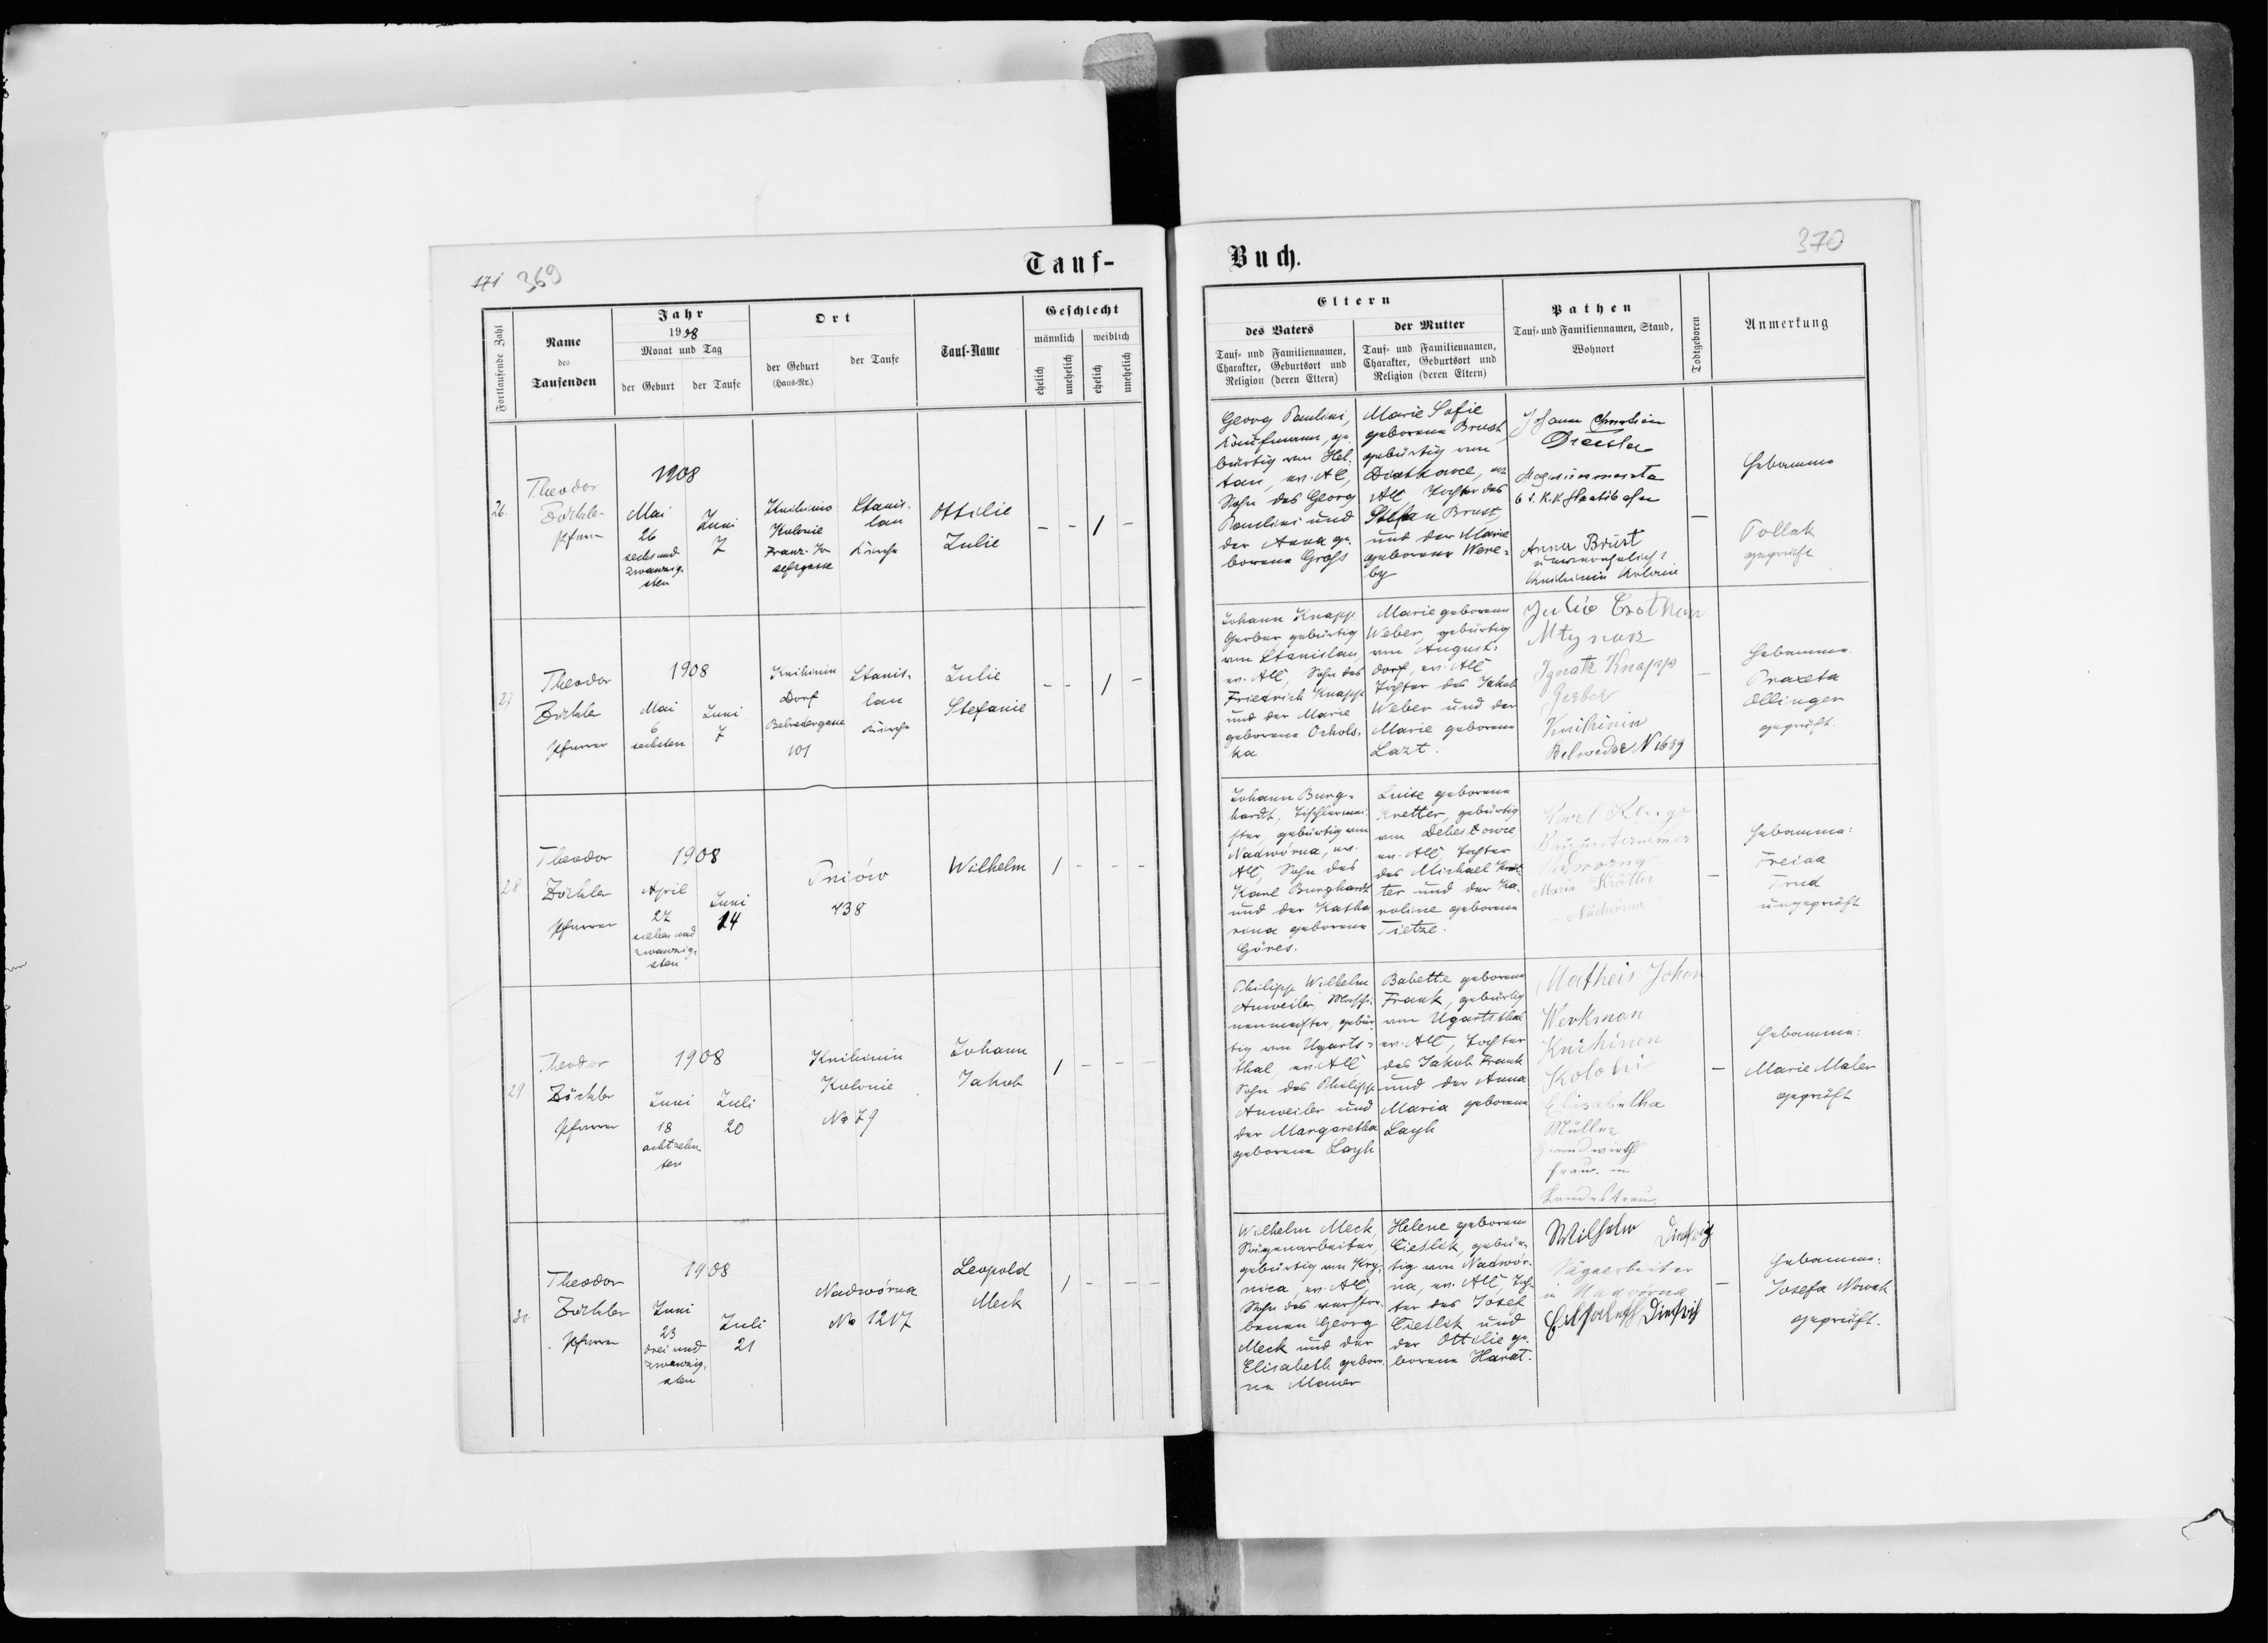 171 369
Tauf-
Buch.
370
Fortlaufende Zahl
Name
des
Taufenden
Jahr
1908
Monat und Tag
der Geburt
der Taufe
Ort
der Geburt
(Haus-Nr.)
der Taufe
Tauf-Name
Geschlecht
männlich
weiblich
ehelich
unehelich
ehelich
unehelich
Eltern
des Vaters
Tauf- und Familiennamen,
Charakter, Geburtsort und
Religion (deren Eltern)
der Mutter
Tauf- und Familiennamen,
Charakter, Geburtsort und
Religion (deren Eltern)
Pathen
Tauf- und Familiennamen, Stand,
Wohnort
Todtgeboren
Anmerkung
26.
Theodor
Zöckler
Pfarrer
1908
Mai
26
sechs und
zwanzig-
sten
Juni
7
Knihinin
Kolonie
Franz-Jo-
sefsgasse
Stanis-
lau
Kirche
Ottilie
Julie
- - 1 -
Georg Paulini,
Kaufmann, ge-
bürtig von Hel-
tau, ev. AC,
Sohn des Georg
Paulini und
der Anna ge-
borene Groß
Marie Sofie
geborene Brust,
gebürtig von
Diatkowce, ev.
AC, Tochter des
Stefan Brust,
und der Marie
geborene Were-
by
Johann
k.k. Staatsbahn
Anna Brust
Knihinin Kolonie
-
Hebamme
Pollak
geprüft
27
Theodor
Zöckler
Pfarrer
1908
Mai
6
sechsten
Juni
7
Knihinin
Dorf
Belvedergasse
101
Stanis-
lau
Kirche
Julie
Stefanie
- - 1 -
Johann Knapp
Gerber gebürtig
von Stanislau,
ev. AC, Sohn des
Friedrich Knapp
und der Marie
geborene Ochols-
ka
Marie geborene
Weber, gebürtig
von August-
dorf, ev. AC
Tochter des Jakob
Weber und der
Marie geborene
Lazt.
Julie
Ignatz Knapp
Gerber
Knihinin
Belweder N 1689
-
Hebamme
Praxeta
Ollinger
geprüft.
28
Theodor
Zöckler
Pfarrer
1908
April
27
sieben und
zwanzig-
sten
Juni
14
Pniów
438
Wilhelm
1 - - -
Johann Burg-
hardt, Tischlermei-
ster, gebürtig von
Nadwórna, ev.
AC, Sohn des
Karl Burghardt
und der Katha
rina geborene
Göres.
Luise geborene
Kretter, gebürtig
von Debeslowce
ev. AC, Tochter
des Michael Kret-
ter und der Ka-
roline geborene
Tietze.
Karl
Maria Krätter
Nadwórna
-
Hebamme:
Freida
Trud
ungeprüft
29
Theodor
Zöckler
Pfarrer
1908
Juni
18
achtzehn
ten
Juli
20
Knihinin
Kolonie
No 79
Johann
Jakob
1 - - -
Philipp Wilhelm
Anweiler, Maschi-
nenmeister, gebür-
tig von Ugarts-
thal, ev. AC
Sohn des Philipp
Anweiler und
der Margaretha
geborene Layh
Babette geborene
Frank, gebürtig
von Ugartsthal
ev. AC, Tochter
des Jakob Frank
und der Anna
Maria geborene
Layh
Matheis Johan
Werkman
Knihinen
Koloni
Elisabetha
Müller
Grundwirths
frau in
Landestreu
-
Hebamme:
Marie Maler
geprüft
30
Theodor
Zöckler
Pfarrer
1908
Juni
23
drei und
zwanzig-
sten
Juli
21
Nadwórna
No 1217
Leopold
Meck
1 - - -
Wilhelm Meck,
Sägenarbeiter,
gebürtig von Kry-
nica, ev. AC,
Sohn des verstor-
benen Georg
Meck und der
Elisabeth gebore-
ne Mauer
Helene geborene
Cietlik, gebür-
tig von Nadwór-
na, ev. AC, Toch-
ter des Josef
Cietlik und
der Ottilie ge-
borene Harat.
Wilhelm Dietrich
Sägearbeiter
in Nadwórna
Elisabeth Dietrich
-
Hebamme:
Josefa Nowak
geprüft.